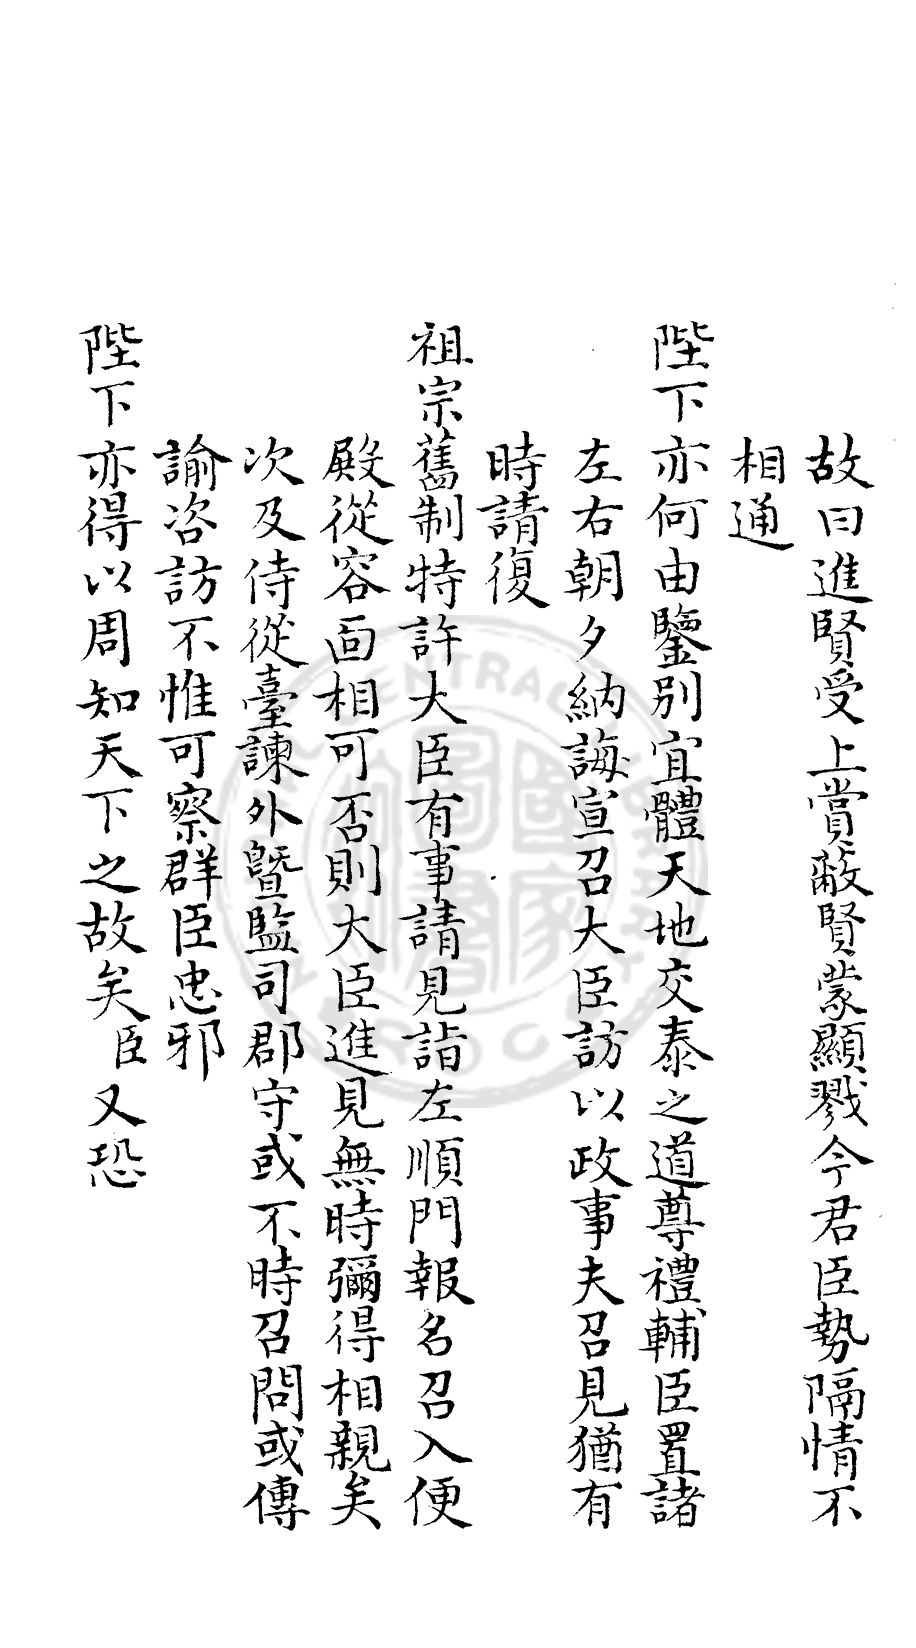 故曰進賢受上賞蔽賢蒙顯戮今君臣勢隔情不
相通
陛下亦何由鑒別宜體天地交泰之道尊禮輔臣置諸
左右朝夕納誨宣召大臣訪以政事夫召見猶有
時請復
祖宗舊制特許大臣有事請見詣左順門報名召入便
殿從容面相可否則大臣進見無時彌得相親矣
次及侍從臺諫外暨監司郡守或不時召問或傳
諭咨訪不惟可察群臣忠邪
陛下亦得以周知天下之故矣臣又恐